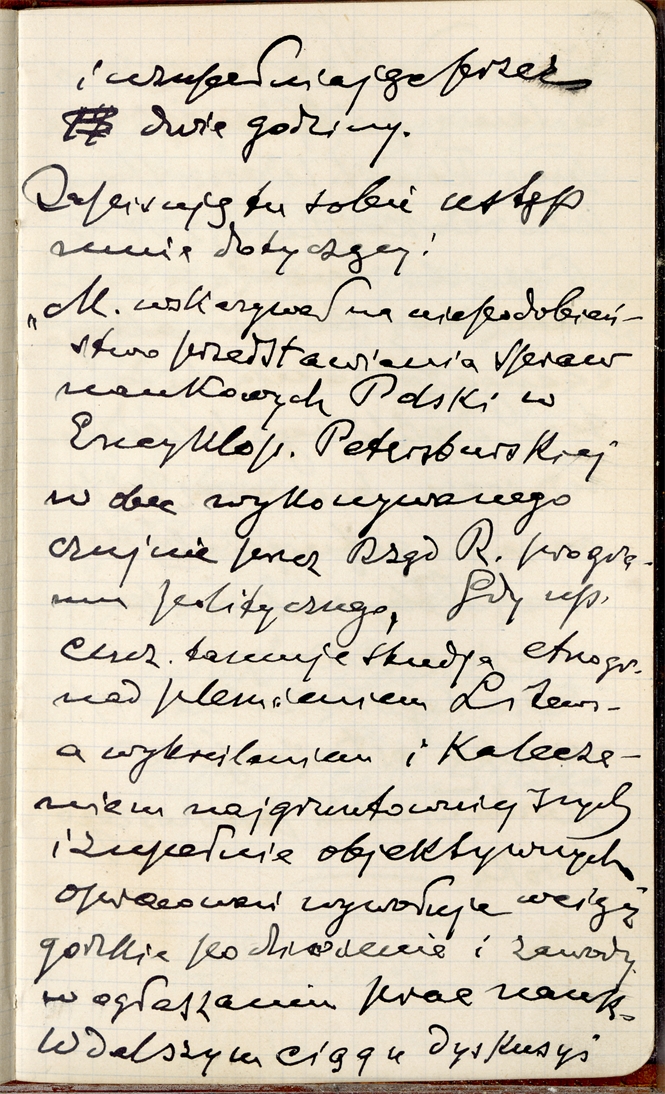 i uzupełniając przez
dwie godziny.
Zapisuję tu sobie ustęp
mnie dotyczący:
„M. wskazywał na niepodobień-
stwo przedstawiania spraw
naukowych Polski w
Encyklop. Petersburskiej
wobec wykonywanego
czujnie przez Rząd R. progra-
mu politycznego, Gdy np.
cenz. tamuje studja etnogr.
nad plemieniem Litews-
a wykreślaniem i Kalecze-
niem najgruntowniejszych
i zupełnie objektywnych
opracowań wywołuje wciąż
gorzkie i zawody
w ogłaszaniu prac nauk.
W dalszym ciągu dyskusyi